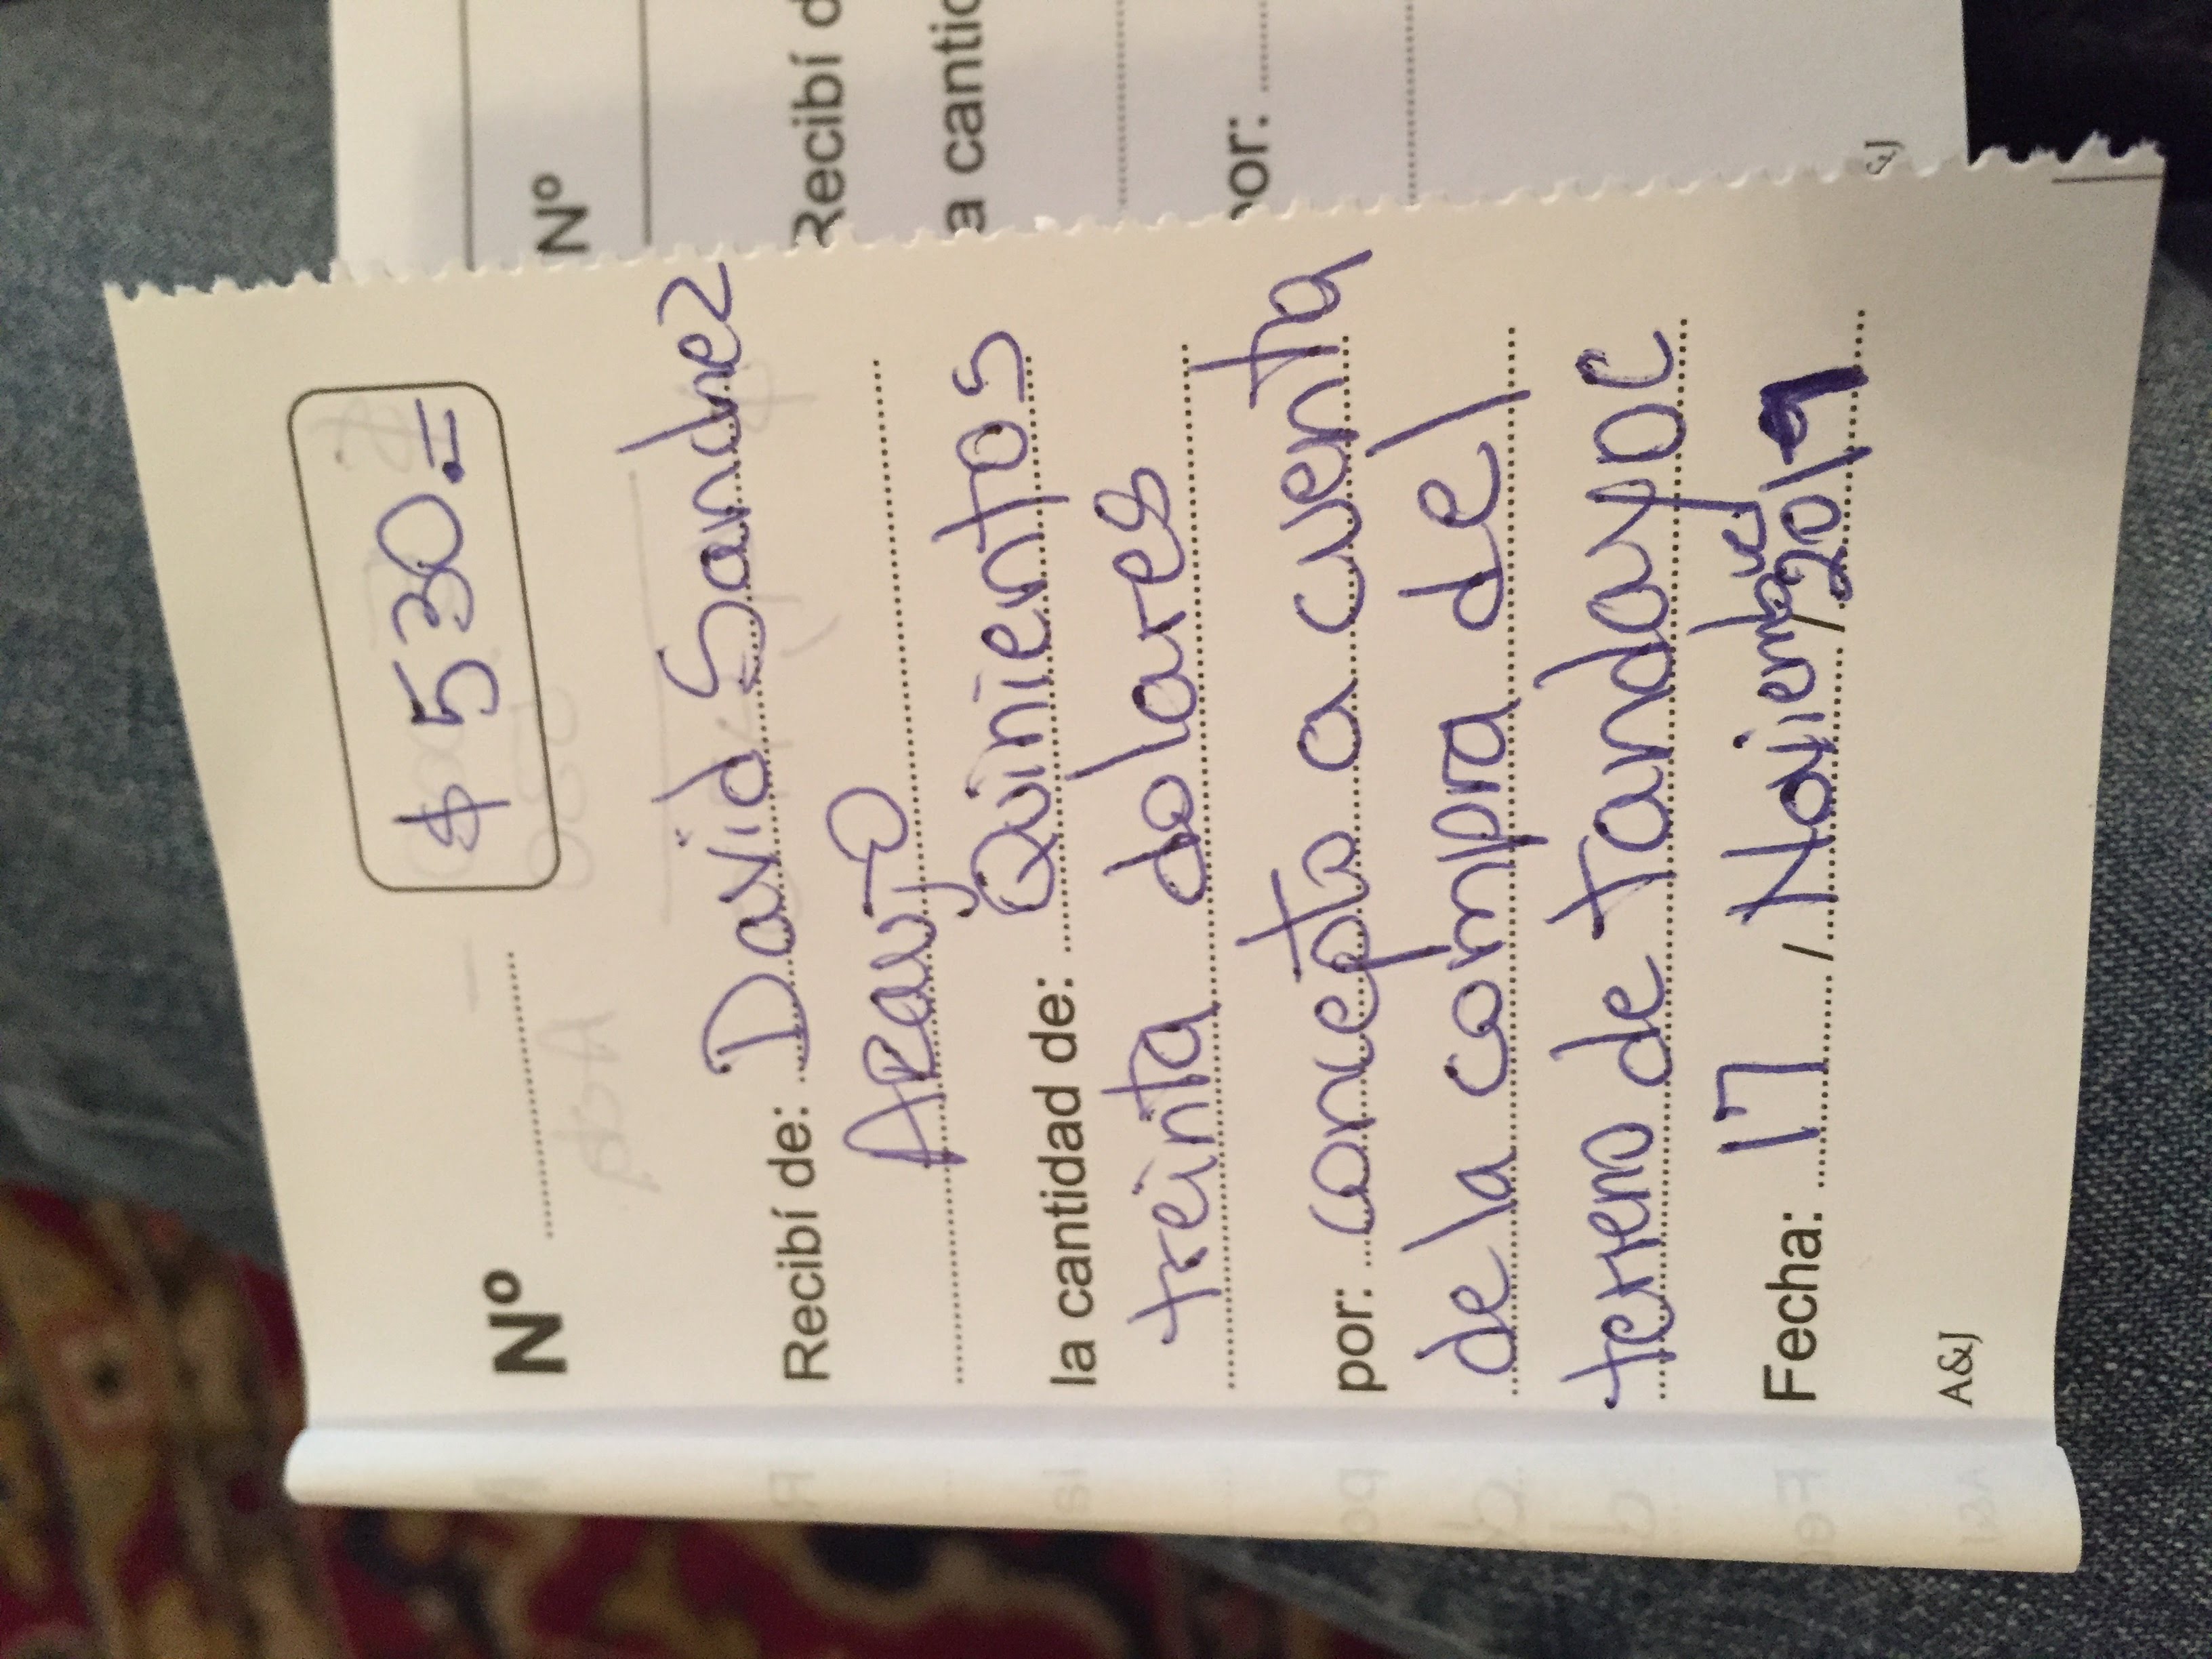 Nº
$ 530.=
Recibí de: David Sanchez
Araujo
la cantidad de: Quinientos
treinta dolares
por: concepto a cuenta
de la compra del
terreno de Tandayoc
Fecha: 17 / Noviembre / 2019
A&J
Nº
Recibí d
a cantid
por:
&J